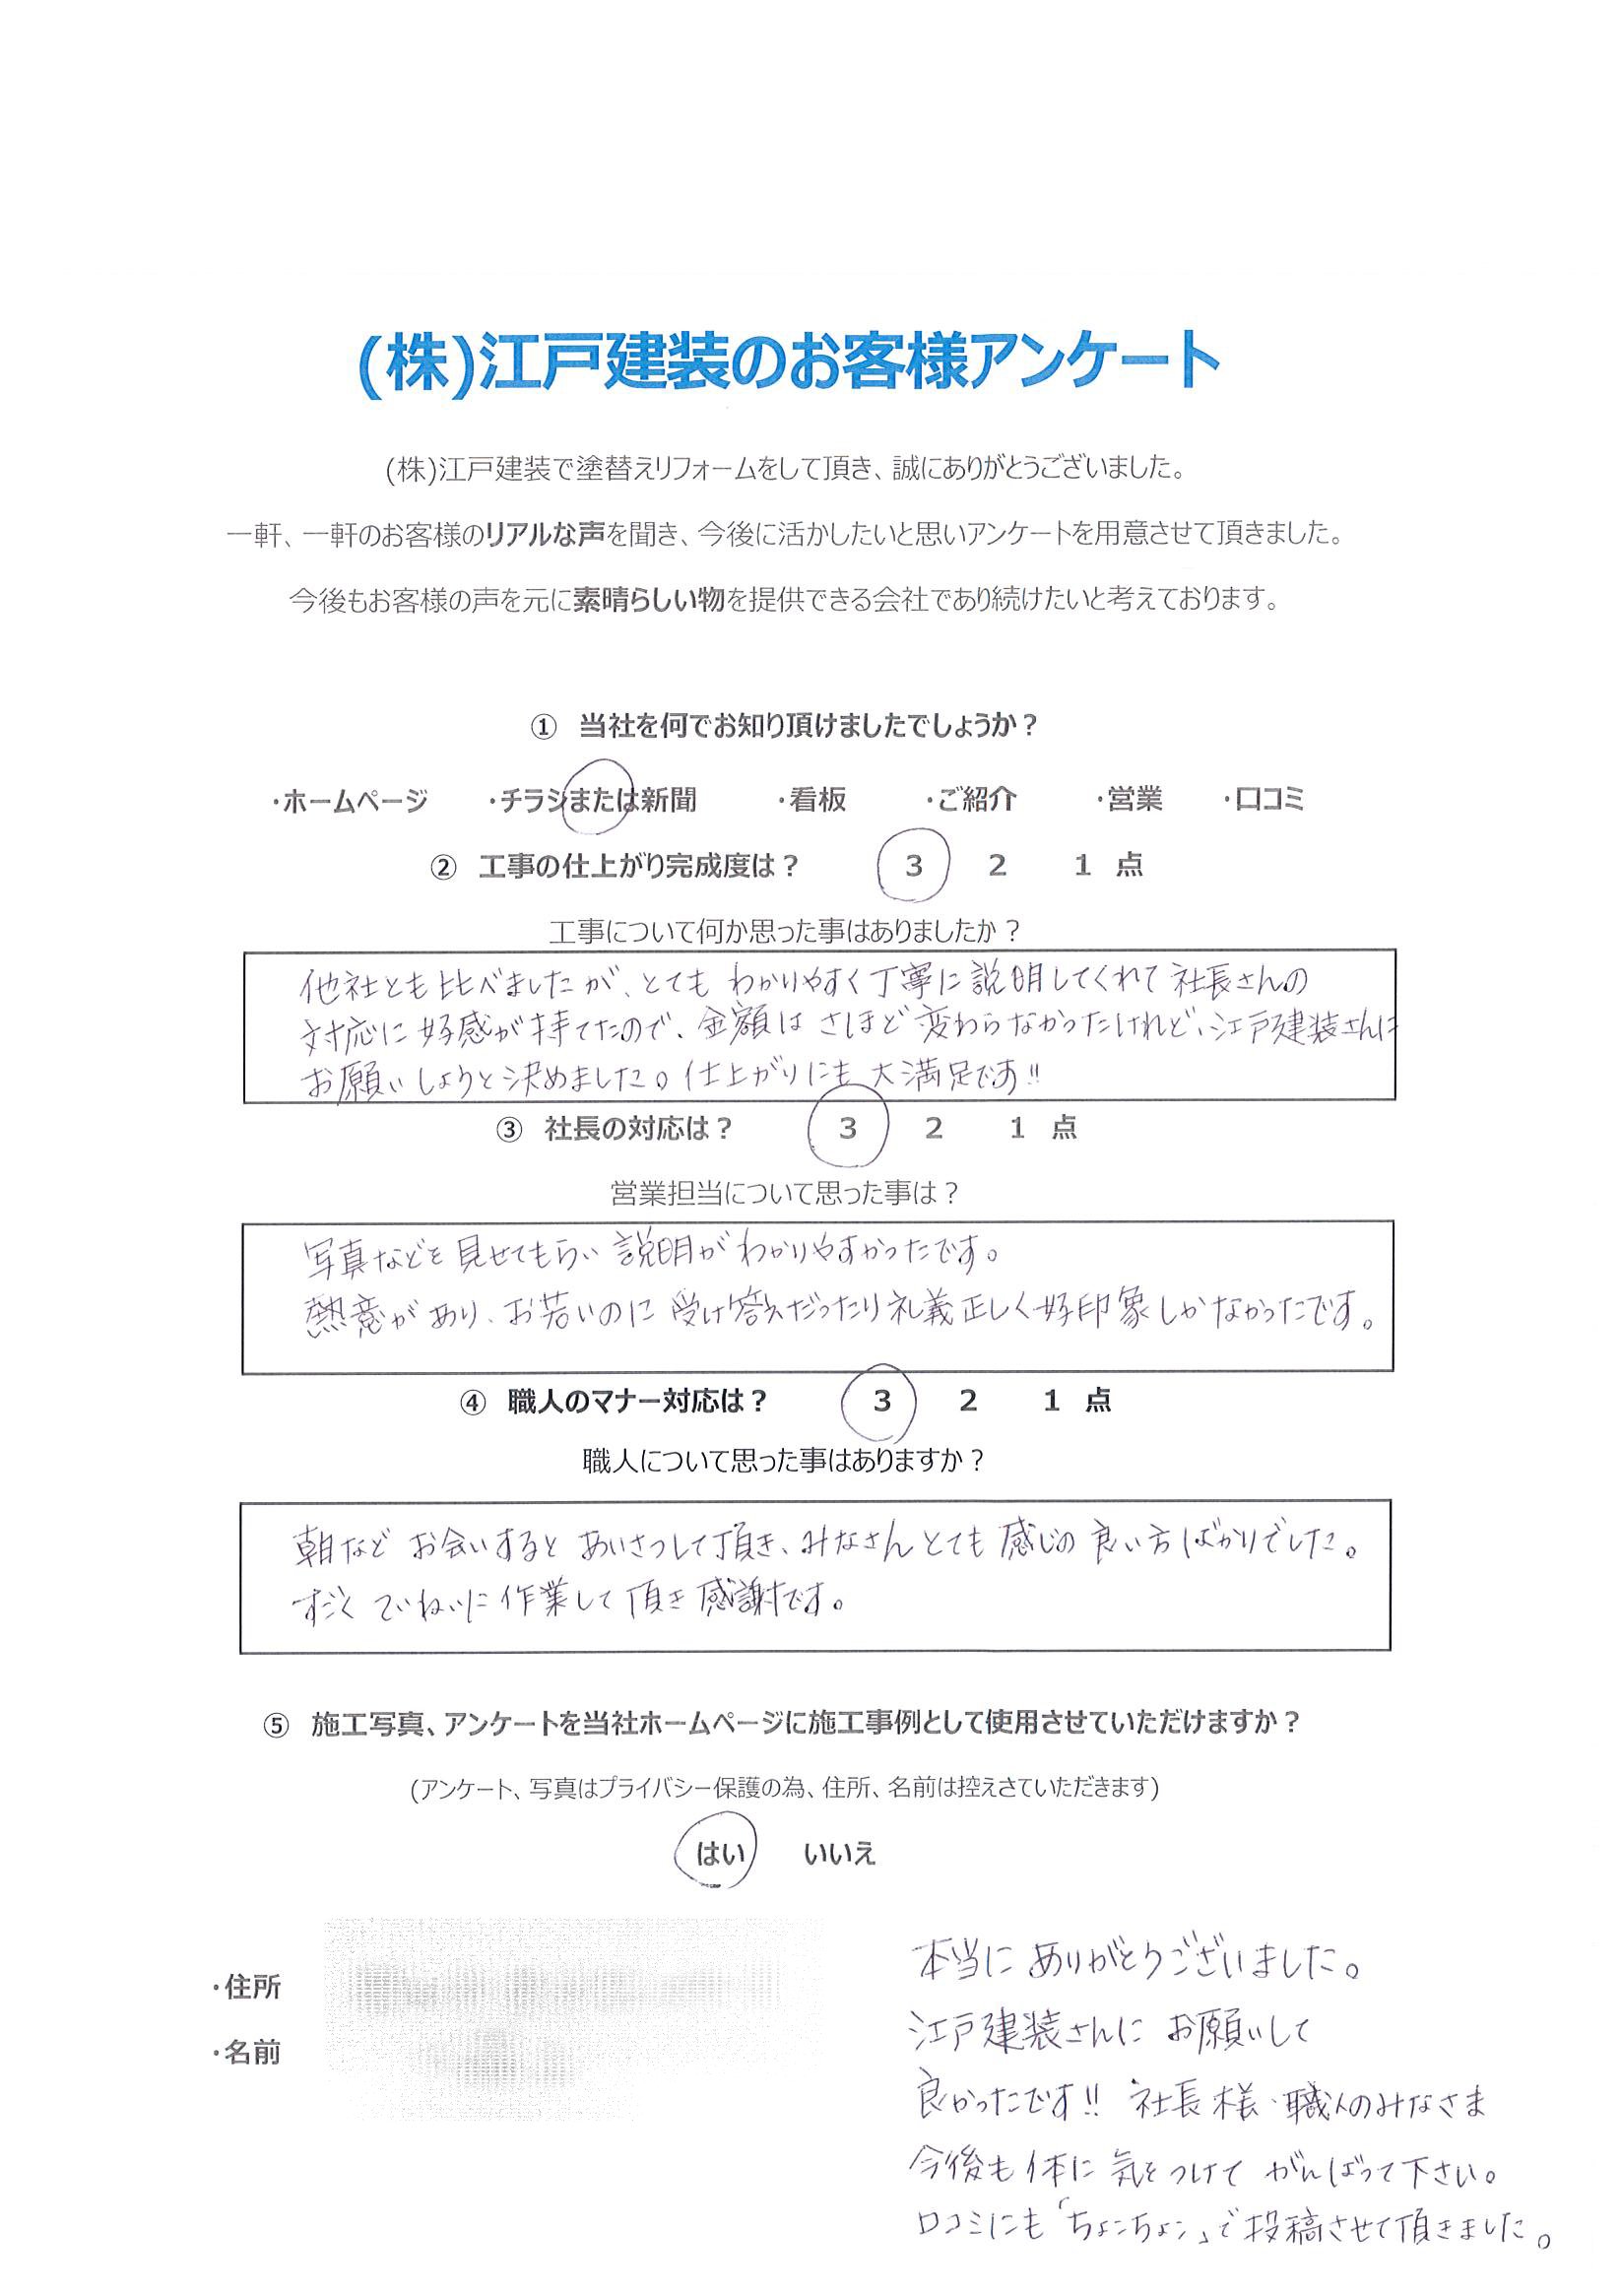 (株)江戸建装のお客様アンケート
(株)江戸建装で塗替えリフォームをして頂き、誠にありがとうございました。
一軒、一軒のお客様のリアルな声を聞き、今後に活かしたいと思いアンケートを用意させて頂きました。
今後もお客様の声を元に素晴らしい物を提供できる会社であり続けたいと考えております。
① 当社を何でお知り頂けましたでしょうか？
・ホームページ ・チラシまたは新聞 ・看板 ・ご紹介 ・営業 ・口コミ
② 工事の仕上がり完成度は？ 3 2 1 点
工事について何か思った事はありましたか？
他社とも比べましたが、とても わかりやすく丁寧に説明してくれて社長さんの
対応に好感が持てたので、金額は さほど変わらなかったけれど、江戸建装さんに
お願いしようと決めました。仕上がりにも大満足です!!
③ 社長の対応は？ 3 2 1 点
営業担当について思った事は？
写真などを見せてもらい説明がわかりやすかったです。
熱意があり、お若いのに受け答えだったり礼義正しく好印象しかなかったです。
④ 職人のマナー対応は？ 3 2 1 点
職人について思った事はありますか？
朝など お会いすると あいさつして頂き、みなさんとても感じの良い方ばかりでした。
すごく ていねいに作業して頂き感謝です。
⑤ 施工写真、アンケートを当社ホームページに施工事例として使用させていただけますか？
(アンケート、写真はプライバシー保護の為、住所、名前は控えさていただきます)
はい いいえ
・住所
・名前
本当に ありがとうございました。
江戸建装さんに お願いして
良かったです!! 社長様・職人のみなさま
今後も体に気をつけて がんばって下さい。
口コミにも「ちょこちょこ」で投稿させて頂きました。